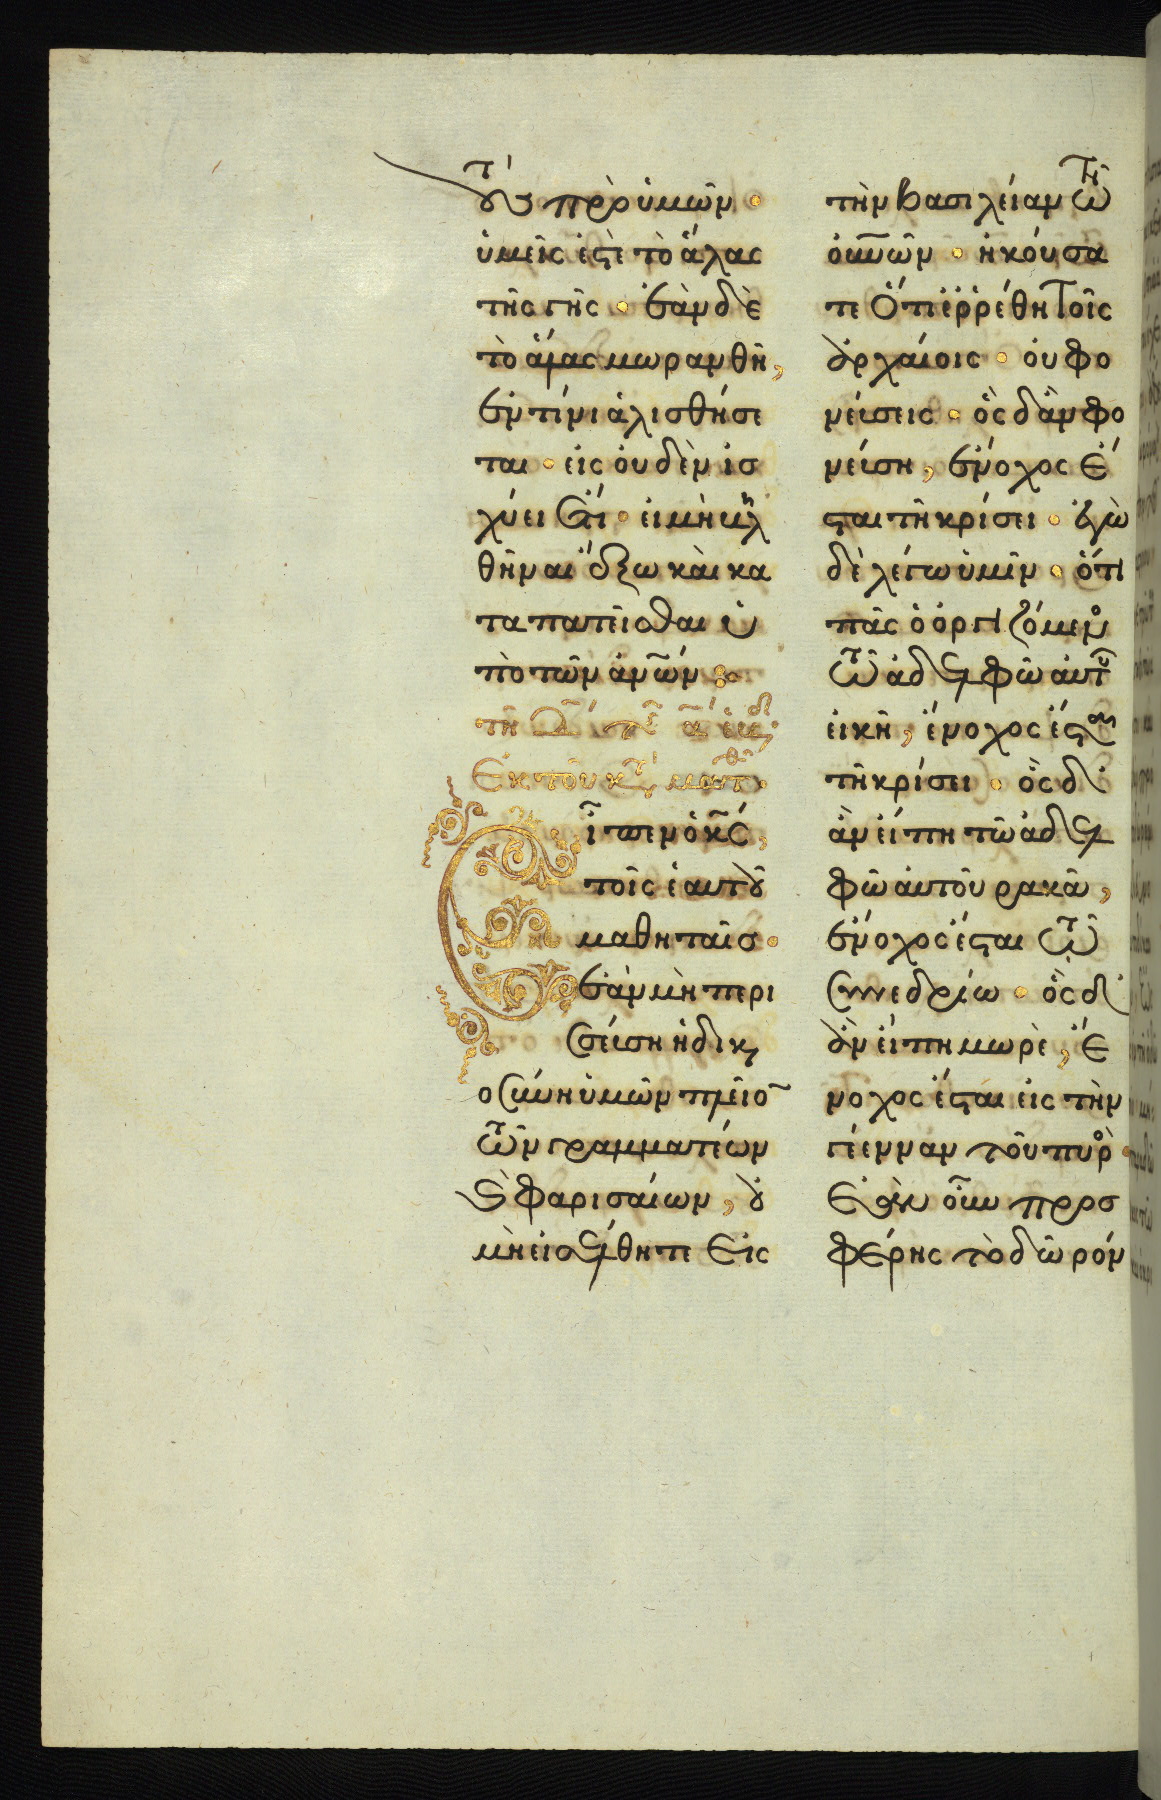 τοὺς πρὸ ὑμῶν·
ὑμεῖς ἐστὲ τὸ ἅλας
τῆς γῆς· ἐὰν δὲ
τὸ ἅλας μωρανθῆ,
ἐν τίνι ἁλισθήσε
ται· εἰς οὐδὲν ἰσ
χύει ἔτι· εἰ μὴ βλη
θῆναι ἔξω καὶ κα
ταπατεῖσθαι ὑ
πὸ τῶν ἀν̅ων:
τῆ
Ἐκ τοῦ κτ΄ ματθ·
Εἶπεν ὁ κ̅ς,
τοῖς ἑαυτοῦ
μαθηταῖς·
ἐὰν μὴ περι
σεύση ἡ δικαι
οσύνη ὑμῶν πλεῖον
τῶν γραμματέων
καὶ φαρισαίων, οὐ
μὴ εἰσέλθητε εἰς
τὴν βασιλείαν τῶν
οὐ̅νῶν· ἠκούσα
τε ὅτι ἐρρέθη τοῖς
ἀρχαίοις· οὐ φο
νεύσεις· ὃς δ᾽ ἂν φο
νεύση, ἔνοχος ἔ
σται τῆ κρίσει· ἐγὼ
δὲ λέγω ὑμῖν· ὅτι
πᾶς ὁ ὀργιζόμενος
τῶ ἀδελφῶ αὐτοῦ
εἰκῆ, ἔνοχος ἔσται
τῆ κρίσει· ὃς δ᾽
ἂν εἴπη τῶ ἀδελ
φῶ αὐτοῦ ρακᾶ,
ἔνοχος ἔσται τῶ
συνεδρίω· ὃς δ᾽
ἂν εἴπη μωρὲ, ἔ
νοχος ἔσται εἰς τὴν
γέενναν τοῦ πυρός·
Ἐὰν οὖν προσ
φέρης τὸ δῶρόν